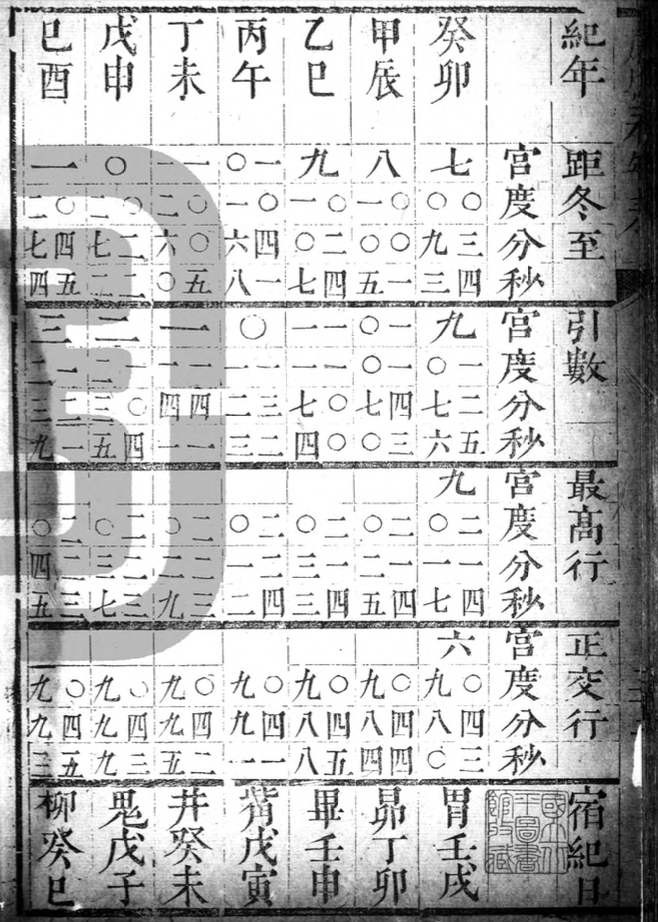 紀年 距冬至 引數 最高行 正交行 宿紀日
宮度分秒 宮度分秒 宮度分秒 宮度分秒
癸卯 七 〇〇 三九 四三 九 一〇 二七 五六 九 二〇 一一 四七 六 〇九 四八 三〇 胃壬戌
甲辰 八 〇一 〇〇 一五 一〇 一〇 四七 三〇 二〇 一二 四五 〇九 四八 四四 昴丁卯
乙巳 九 〇一 二〇 四七 一一 一一 〇七 〇四 二〇 一三 四三 〇九 四八 五八 畢壬申
丙午 一〇 〇一 四六 一八 〇 一一 三二 二三 二〇 二一 四二 〇九 四九 一一 觜戊寅
丁未 一一 〇二 〇六 五〇 一 一一 四四 一一 二〇 二二 三九 〇九 四九 二五 井癸未
戊申 〇 〇二 二七 二二 二 一二 〇三 四五 二〇 二三 三七 〇九 四九 三九 鬼戊子
己酉 一 〇二 四七 五四 三 一二 二三 一九 二〇 二四 三五 〇九 四九 五三 柳癸巳